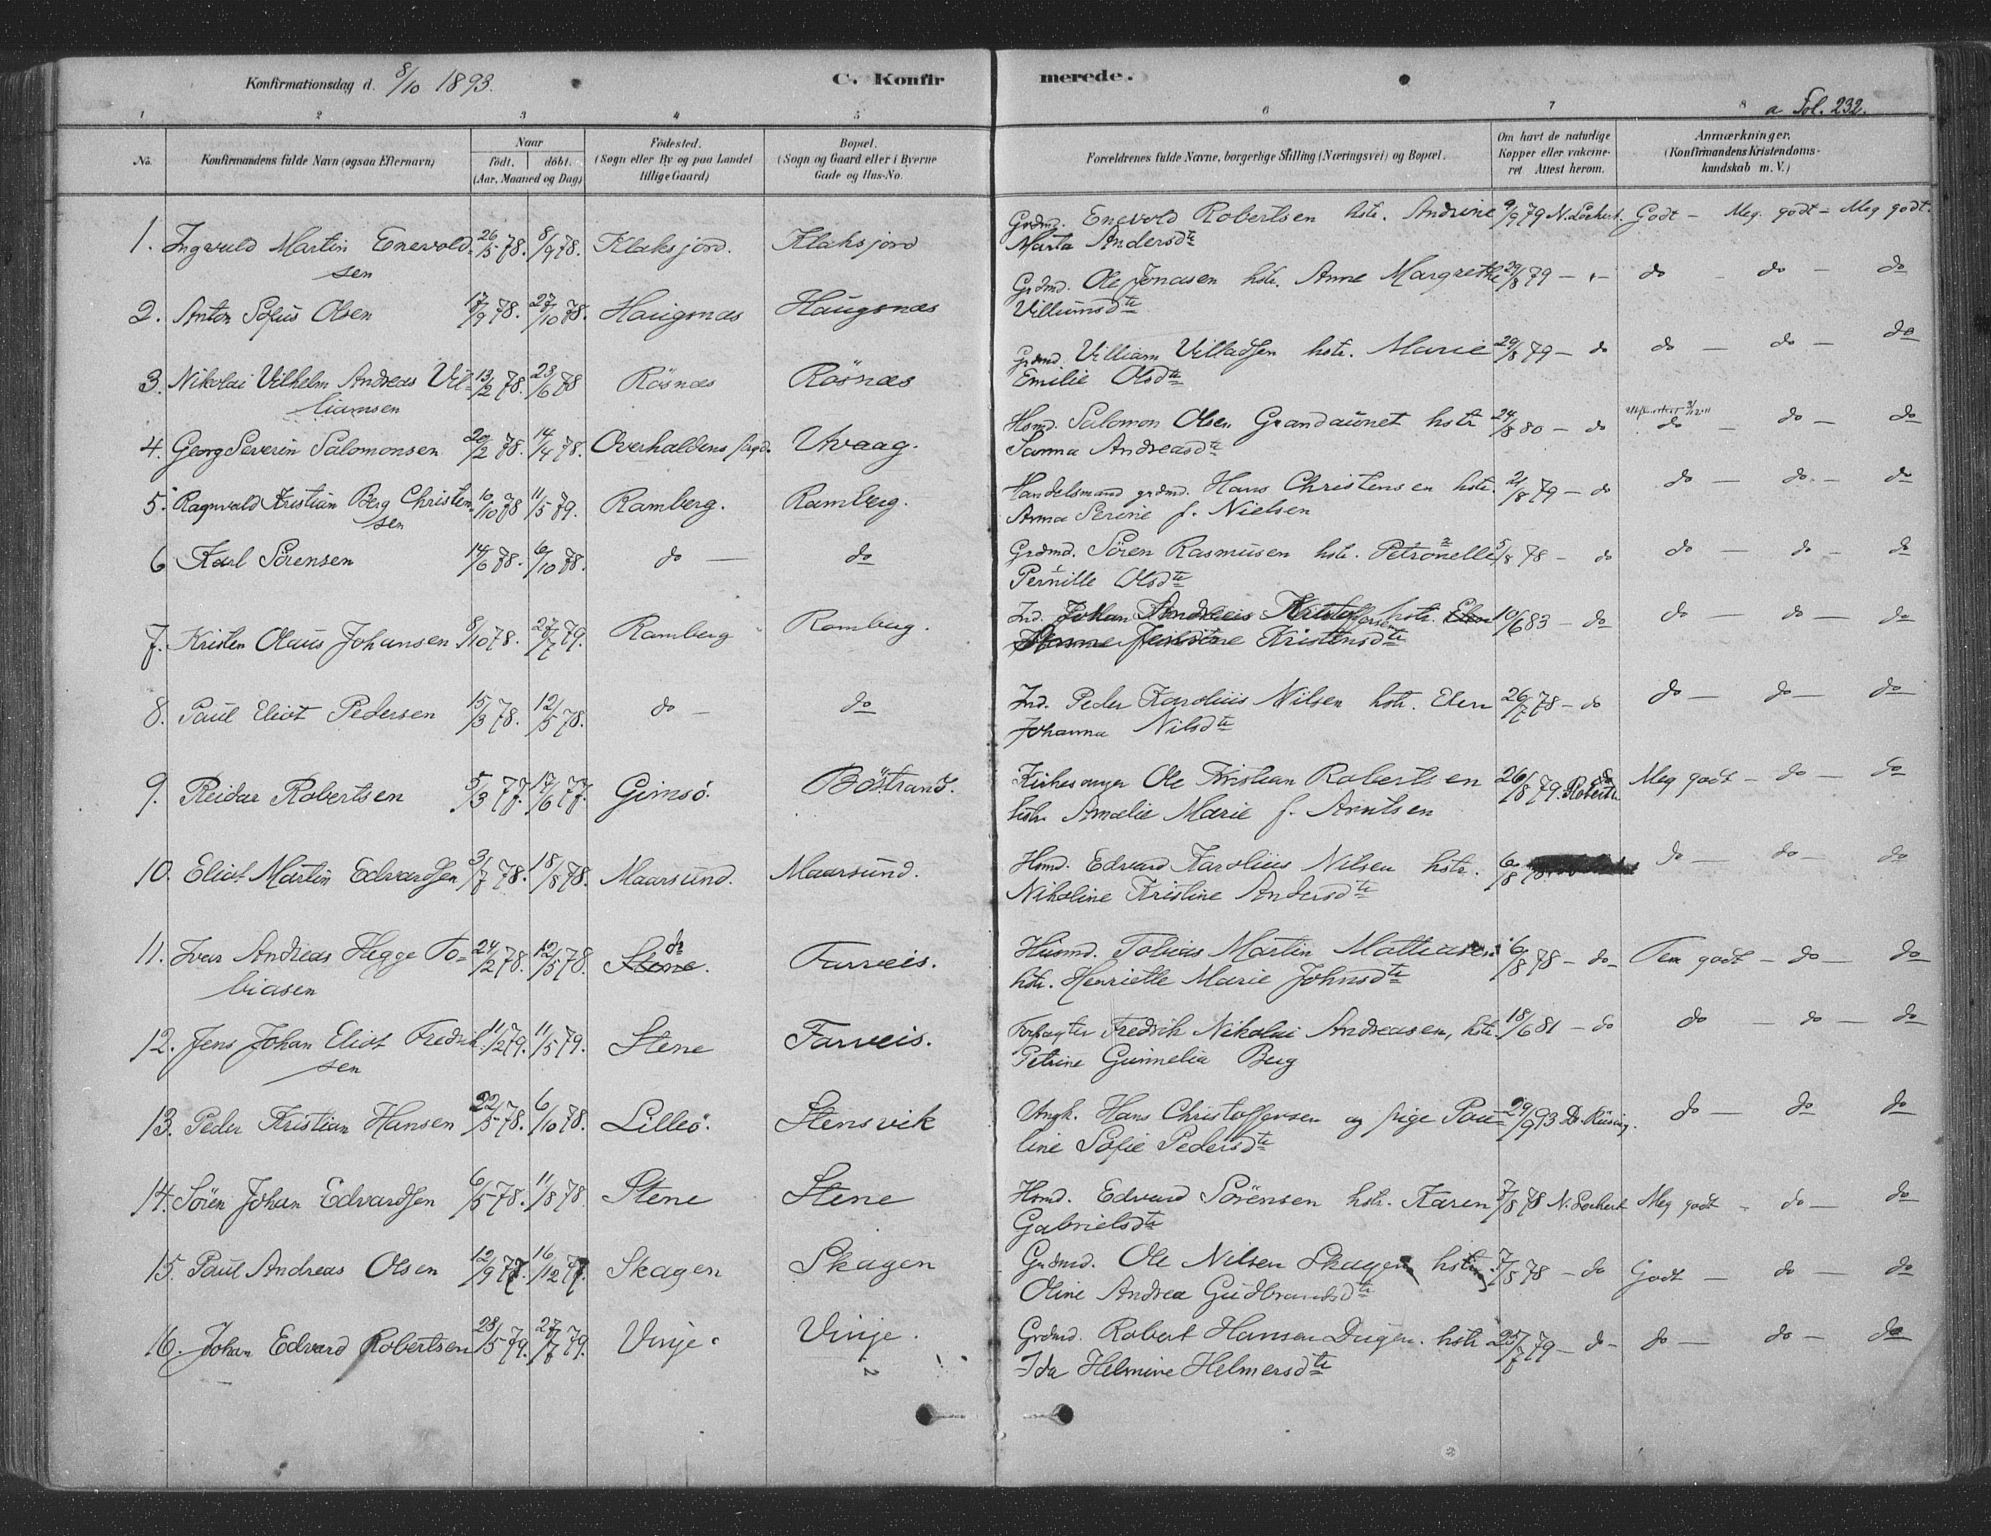 Konfirmationsdag d. 8/10 1893.
C. Konfirmerede.
a Fol. 232.
1 2 3 4 5 6 7 8
No.
Konfirmandens fulde Navn (ogsaa Efternavn)
Naar
født, døbt.
(Aar, Maaned og Dag)
Fødested.
(Sogn eller By og paa Landet
tillige Gaard)
Bopæl.
(Sogn og Gaard eller i Byerne
Gade og Hus-No.
Forældrenes fulde Navne, borgerlige Stilling (Næringsvei) og Bopæl.
Om havt de naturlige
Kopper eller vakcine-
ret Attest herom.
Anmærkninger.
(Konfirmandens Kristendoms-
kundskab m. V.)
1. Ingvald Martin Enevold- 26/5 78. 8/9 78. Klaksjord. Klaksjord Grdmd. Enevold Robertsen hstr. Andrine 9/9 79 N. Lockert. Godt – Meg. godt – Meg godt.
sen Marta Andersdtr
2. Anton Sofus Olsen 17/9 78. 27/10 78. Haugsnæs Haugsnæs Grdmd. Ole Jonasen hstr. Anne Margrethe 29/8 79 – " – do – do – do
Villumsdtr
3. Nikolai Vilhelm Andreas Vil- 13/2 78. 23/6 78 Rösnæs Rösnæs Grdmd. Villiam Villadsen hstr. Marie 29/8 79 – do do – do – do
liamsen Emilie Olsdtr
4. Georg Severin Salomonsen 20/2 78. 14/4 78. Overhaldens prgd. Uvaag. Hsmd. Salomon Olsen Grandaunet hstr 24/8 80 – do do – do – do
Sanna Andreasdtr
5. Ragnvald Kristian Berg Christen 10/10 78 11/5 79. Ramberg. Ramberg. Handelsmand grdmd. Hans Christensen hstr. 21/8 79 – do do – do. – do
sen Anna Serine f. Nielsen
6 Karl Sörensen 14/6 78. 6/10 78. do – do Grdmd. Sören Rasmusen hstr. Petronelle 5/8 78 – do do – do – do
Pernille Olsdtr
7. Kristen Olaus Johansen 8/10 78. 27/7 79. Ramberg Ramberg. Ind. Johan Andreas Kristoffersen hstr. 10/6 83 – do do – do – do
Kristensdtr
8. Paul Eliot Pedersen 15/3 78. 12/5 78. do – do Ind. Peder Karolius Nilsen hstr. Elen 26/7 78 – do do – do – do
Johanna Nilsdtr
9. Reidar Robertsen 5/3 77. 17/6 77. Gimsö. Böstrand. Kirkesanger Ole Kristian Robertsen 26/8 79. do Meg godt – do – do
hstr Amalie Marie f. Arntsen
10. Eliot Martin Edvardsen 3/7 78. 18/8 78. Maarsund. Maarsund. Hsmd. Edvard Karolius Nilsen hstr. 6/8 78. do – do – do
Nikoline Kristine Andersdtr
11. Ivar Andreas Hegge To- 24/2 78. 12/5 78. Stene. Farveis. Husmd. Tobias Martin Mathiasen 6/8 78 – do – Tem godt – do – do
biasen hstr. Henriette Marie Johnsdtr
12. Jens Johan Eliot Fredrik 11/2 79. 11/5 79. Stene Farveis. Forpagter Fredrik Nikolai Andreasen, hstr. 18/6 81 – do do – do – do
sen Petrine Gunnelia Berg
13. Peder Kristian Hansen 22/5 78. 6/10 78. Lilleö. Stensvik Ungk. Hans Christoffersen og pige Pau- 29/9 93 Dr. Rüsing. do – do – do
line Sofie Pedersdtr
14. Sören Johan Edvardsen 6/5 78. 11/8 78 Stene Stene Hsmd. Edvard Sörensen hstr. Karen 7/8 78 N. Lockert Meg godt – do – do
Gabrielsdtr
15. Paul Andreas Olsen 12/9 77. 16/12 77. Skagen Skagen Grdmd. Ole Nilsen Skagen hstr. 7/5 78 – do Godt – do – do
Oline Andrea Gudbrandsdtr
16. Johan Edvard Robertsen 28/5 79. 27/7 79. Vinje. Vinje. Grdmd. Robert Hansen hstr 25/7 79 – do – do – do – do
Ida Helmine Helmersdtr